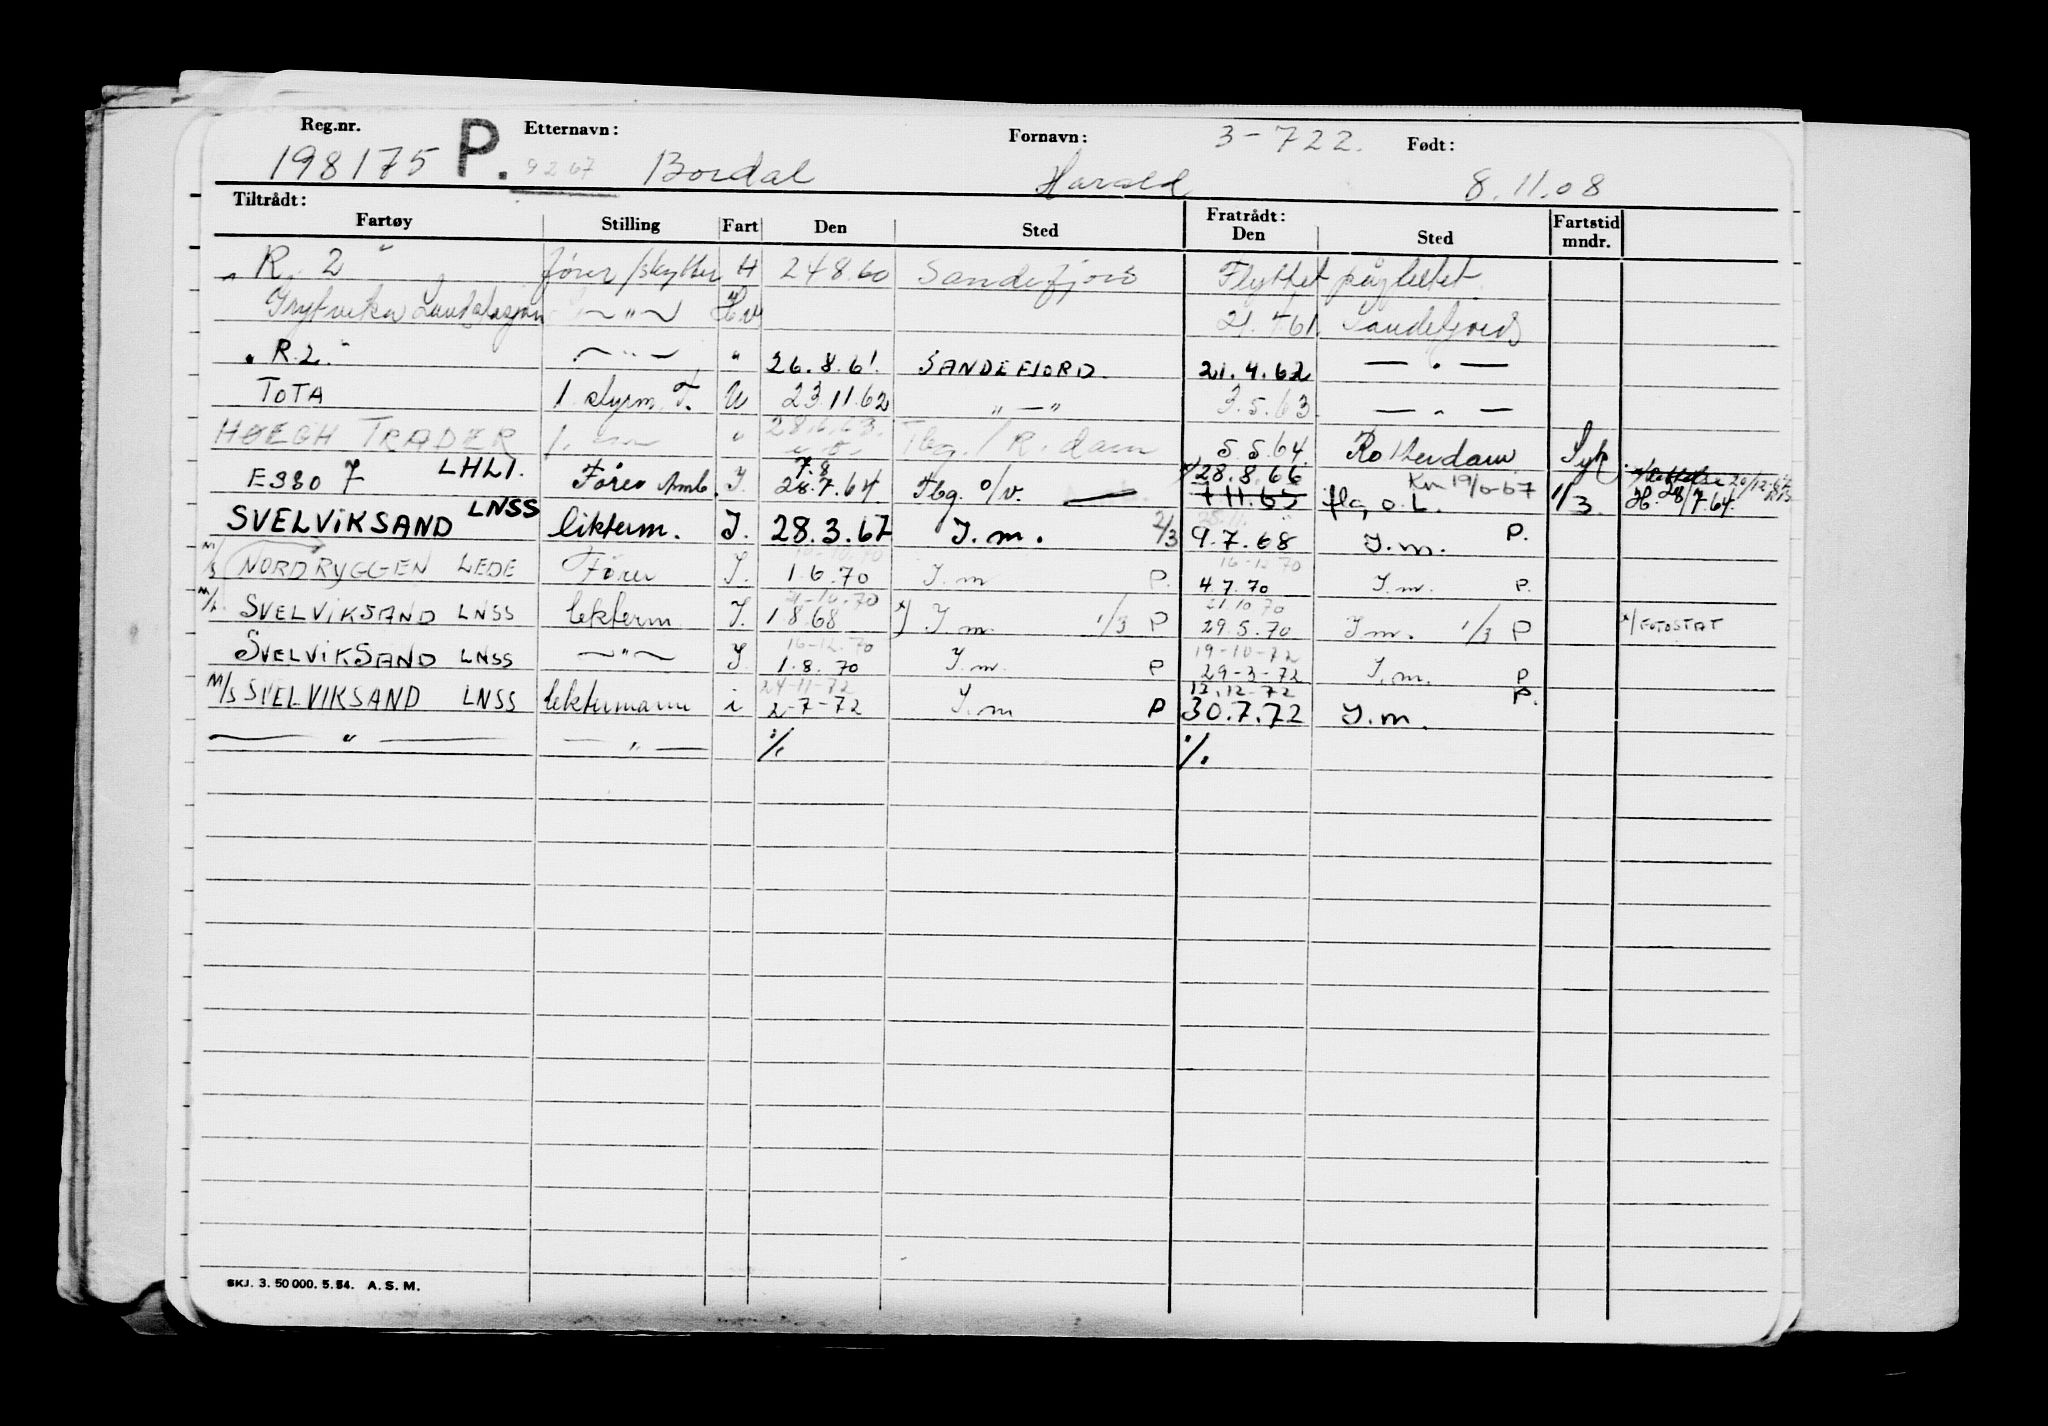 Reg.nr. Etternavn: Fornavn: 3-722. Født:
198175 P. 9267 Bordal Harald 8.11.08
Tiltrådt: Fratrådt:
Fartøy Stilling Fart Den Sted Den Sted Fartstid mndr.
" R. 2 " fører/skytter H 24 8.60 Sandefjord Flyttet på feltet.
Grytviken Landstasjon — " — Hv 21. 61. Sandefjord
" R.2." — " — " 26.8.61. SANDEFJORD. 21.4.62 — " —
TOTA 1. styrm. T. U 23.11.62 " — " 3.5.63. — " —
HØEGH TRADER 1. — " — " 28.6.63. Tbg. / R.dam 5.5.64. Rotterdam Syk.
ESSO 7 LHLI. Fører Amb. I. 7.8 28.7.64 Tbg. o/v. — x/ 28.8.66 1 11.65 flg. o.L. Kv 19/6-67 1/3 x/ Rettelse 20/12-67 H. 28/7.64.
SVELVIKSAND LNSS likterm. I. 28.3.67 I.m. 2/3 9.7.68 I.m. P.
M/S NORDRYGGEN LEDE Fører I. 1.6.70 I.m P. 16-12 70 4.7.70 I.m. P.
M/L. SVELVIKSAND LNSS lekterm I. 21-10.70 1 8.68 x/ I.m. 1/3 P 21.10 70 29.5.70 I.m. 1/3 P x/ FOTOSTAT
SVELVIKSAND LNSS — " — I. 16-12.70 1.8.70 I.m. P 19-10-72 29-3-72 I.m. P
M/S SVELVIKSAND LNSS lektermann i 24-11-72 2-7-72 I.m P 12.12-72 30.7.72 I.m. P.
— " — — " — % %
SKJ. 3. 50 000. 5. 54. A. S. M.